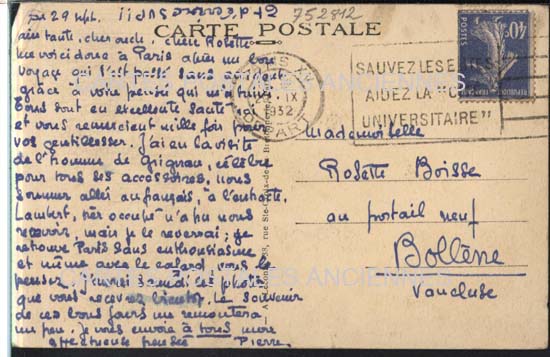 29 sept.
752812
CARTE POSTALE
ma tante, cher oncle, chère Rosette
me voici donc à Paris après un bon
voyage qui s'est passé sans incident
grâce à votre pensée qui m'a suivi.
Tous sont en excellente santé
et vous remercient mille fois pour
vos gentillesses. J'ai eu la visite
de l'homme de Grignan, célèbre
pour tous ses accessoires, nous
sommes allés au français, à l'entracte
Lambert, très occupé n'a pu nous
recevoir, mais je le reverrai ; je
retrouve Paris sans enthousiasme
et même avec le cafard, vous le
pensez. J'aurai les photos
que vous recevrez bientôt. Le souvenir
de ces bons jours me remontera
un peu. Je vous envoie à tous mon
affectueuse pensée Pierre.
IX
1932
SAUVEZ LES E
AIDEZ LA "C
UNIVERSITAIRE"
POSTES
40c
Mademoiselle
Rosette Boisse
au portail neuf
Bollène
Vaucluse
ANCIENNES